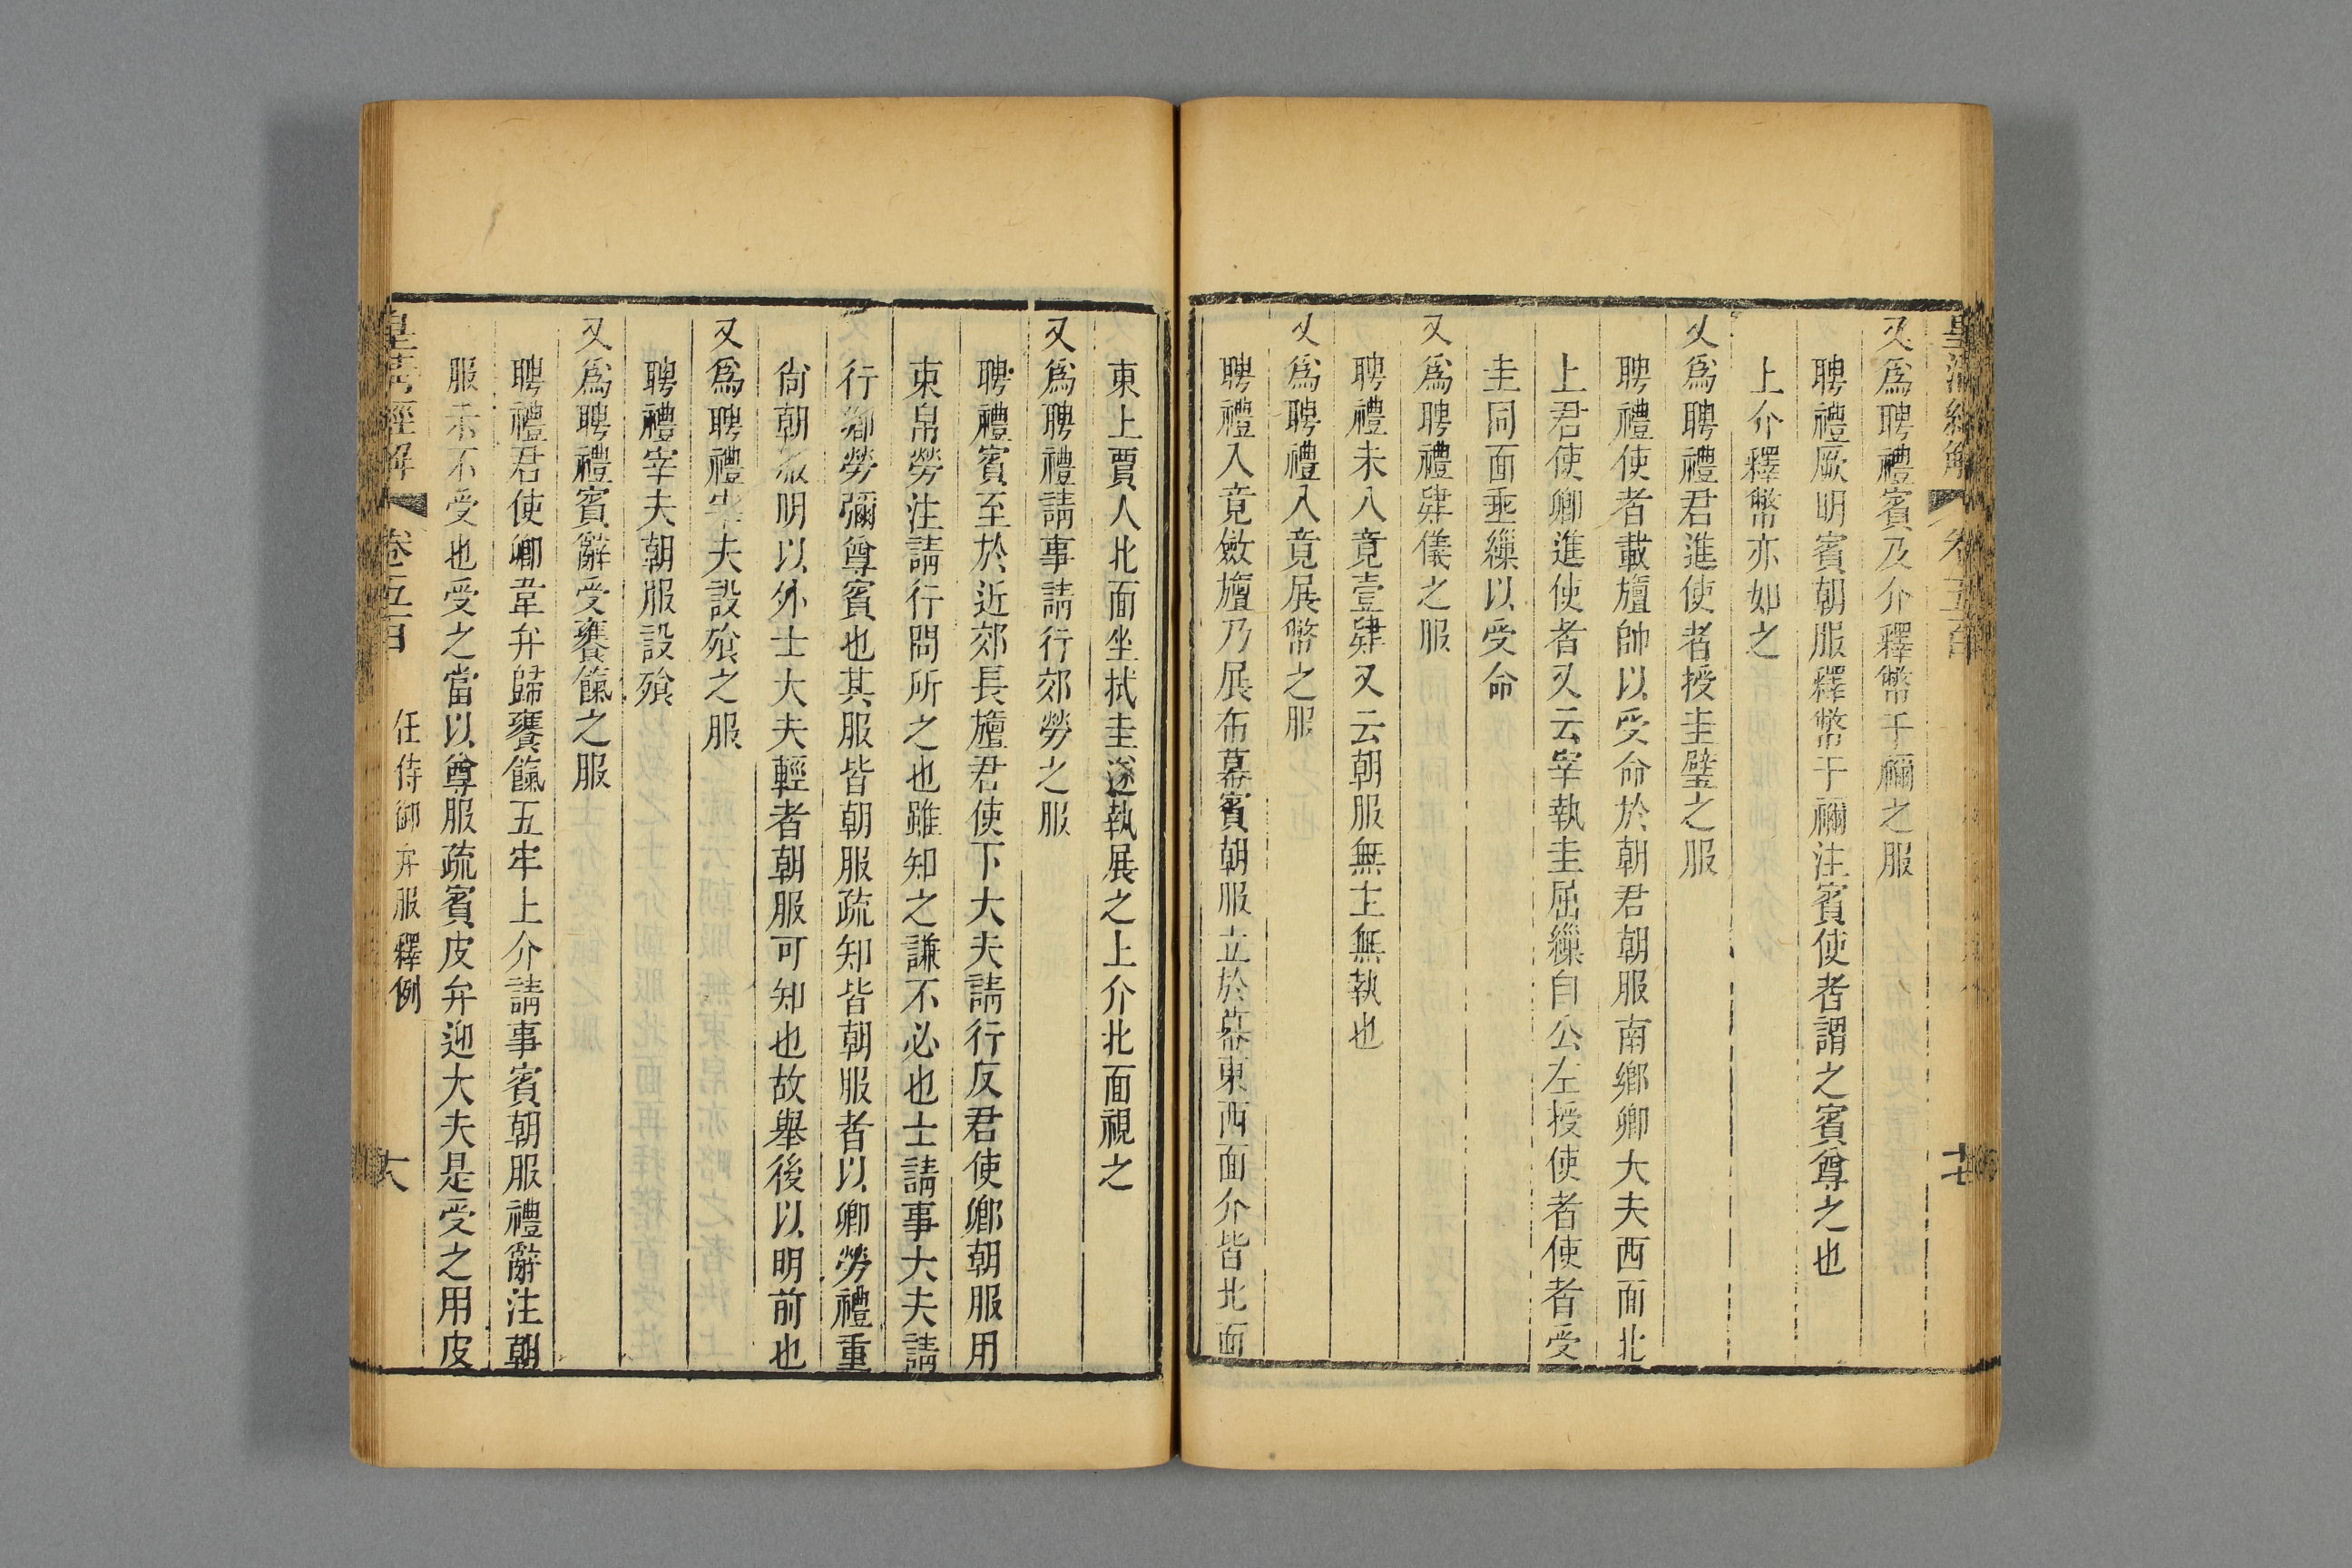 皇清經解
卷五百
十七
又爲聘禮賓及介釋幣于禰之服
聘禮厥明賓朝服釋幣于禰注賓使者謂之賓尊之也
上介釋幣亦如之
又爲聘禮君進使者授圭璧之服
聘禮使者載旜帥以受命於朝君朝服南鄉卿大夫西面北
上君使卿進使者又云宰執圭屈繅自公左授使者使者受
圭同面垂繅以受命
又爲聘禮肄儀之服
聘禮未入竟壹肄又云朝服無主無執也
又爲聘禮入竟展幣之服
聘禮入竟斂旜乃展布幕賓朝服立於幕東西面介皆北面
東上賈人北面坐拭圭遂執展之上介北面視之
又爲聘禮請事請行郊勞之服
聘禮賓至於近郊長旜君使下大夫請行反君使卿朝服用
束帛勞注請行問所之也雖知之謙不必也士請事大夫請
行卿勞彌尊賓也其服皆朝服疏知皆朝服者以卿勞禮重
尙朝服明以外士大夫輕者朝服可知也故舉後以明前也
又爲聘禮宰夫設飧之服
聘禮宰夫朝服設飧
又爲聘禮賓辭受饔餼之服
聘禮君使卿韋弁歸饔餼五牢上介請事賓朝服禮辭注朝
服示不受也受之當以尊服疏賓皮弁迎大夫是受之用皮
皇清經解
卷五百
任侍御弁服釋例
大